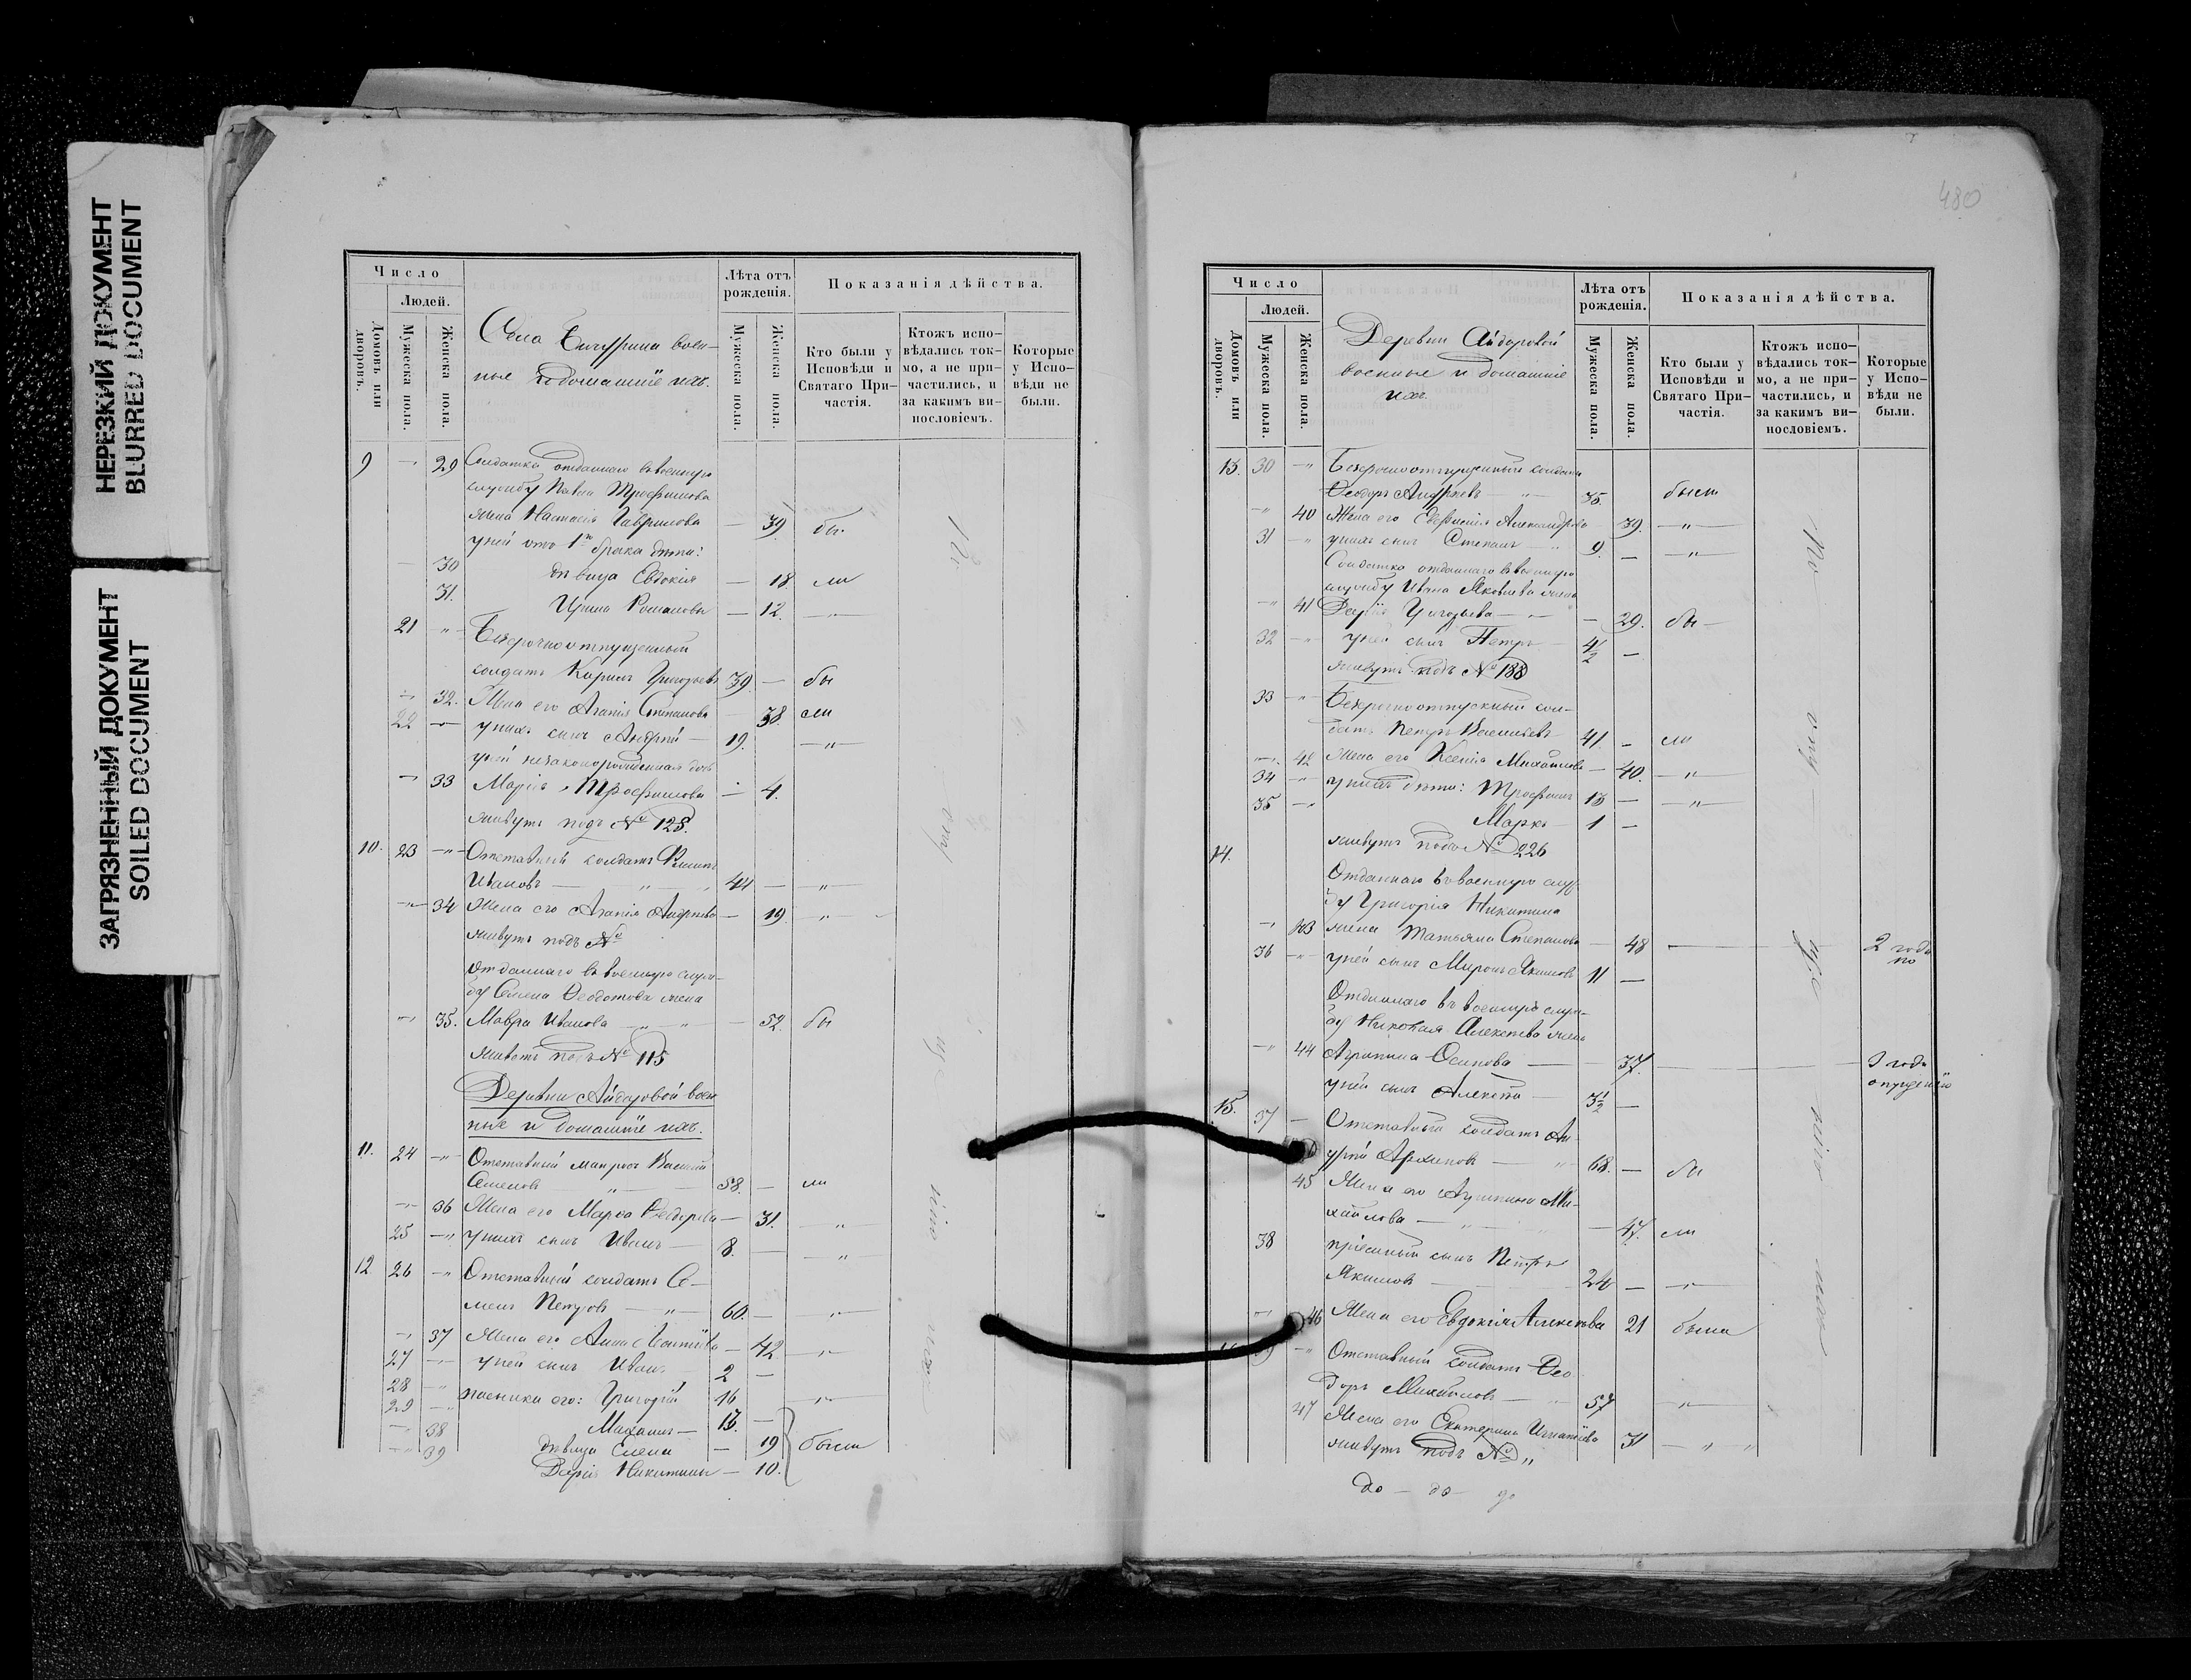 НЕРЕЗКИЙ ДОКУМЕНТ
BLURRED DOCUMENT
ЗАГРЯЗНЕННЫЙ ДОКУМЕНТ
SOILED DOCUMENT
Число
Людей.
Домовъ или дворовъ.
Мужеска пола.
Женска пола.
Села военные
и домашнiе ихъ.
Лѣта отъ рожденiя.
Мужеска пола.
Женска пола.
Показанiя дѣйства.
Кто были у Исповѣди и Святаго Причастiя.
Ктожъ исповѣдались токмо, а не причастились, и за какимъ винословiемъ.
Которые у Исповѣди не были.
9 29 Солдатка отданнаго въ военную
службу Павла Трофимова
жена Настасiя Гаврилова — 39 бы
у ней отъ 1го брака дѣти:
30 дѣвица Евдокiя — 18 ли
31. Ирина Романовы — 12.
21 Безсрочноотпущенный
солдатъ Кирилъ Григорьевъ 39 — бы
32. Жена его Агапiя Степанова 38 ли
22 у нихъ сынъ Андрей — 19.
у ней незаконорожденная дочь
33 Марiя Трофимова — 4.
живутъ подъ № 128.
10. 23 Отставный солдатъ Филипъ
Ивановъ — 44 —
34 Жена его Агапiя Андреева — 19
живутъ подъ №
Отданнаго въ военную служ-
бу Семена Ѳедотова жена
35. Мавра Иванова — 52. бы
живетъ подъ № 115
Деревни Айдаровой воен
ные и домашнiе ихъ.
11. 24 Отставный матросъ Василiй
Семеновъ 58. — ли
36 Жена его Марѳа Ѳедорова — 31.
25 у нихъ сынъ Иванъ — 8. —
12 26 Отставный солдатъ Се-
менъ Петровъ — 60. —
37 Жена его Анна Леонтiева — 42
27 у ней сынъ Иванъ 2 —
28 пасынки его: Григорiй 16
29 Михаилъ — 13. —
38 дѣвица Елена — 19 были
39 Дарiя Никитины — 10.
480
Число
Людей.
Домовъ или дворовъ.
Мужеска пола.
Женска пола.
Деревни Айдаровой
военные и домашнiе
ихъ.
Лѣта отъ рожденiя.
Мужеска пола.
Женска пола.
Показанiя дѣйства.
Кто были у Исповѣди и Святаго Причастiя.
Ктожъ исповѣдались токмо, а не причастились, и за какимъ винословiемъ.
Которые у Исповѣди не были.
13. 30 Безсрочноотпущенный солдатъ
Ѳеодоръ Андреевъ — 35. были
40 Жена его Евфимiя Александрова 39.
31 у нихъ сынъ Степанъ 9. —
Солдатка отданнаго въ военную
службу Ивана Яковлева жена
41 Дарiя Григорьева — 29. бы —
32 у ней сынъ Петръ — 4/2 —
живутъ подъ № 138
33 Безсрочноотпускный сол-
датъ Петръ Васильевъ 41. — ли
42 Жена его Ксенiя Михайлова — 40.
34 у нихъ дѣти: Трофимъ 13 —
35 Марко — 1 —
живутъ подъ № 226
14. Отданнаго въ военную служ
бу Григорiя Никитина
43 жена Татьяна Степанова 48 — 2 года
по
36 у ней сынъ Миронъ Якимовъ 11 —
Отданнаго въ военную служ-
бу Николая Алексѣева жена
44 Агрипина Осипова — 37. 3 года
опущенiю
у ней сынъ Алексѣй — 3½ —
15. 37 Отставный солдатъ Ан-
дрей Архиповъ — 68. — бы
45 Жена его Ми-
хайлова — 47. ли
38 прiемный сынъ Петръ
Якимовъ 24 —
46 Жена его Евдокiя Алексѣева 21 была
Отставный солдатъ Ѳео
доръ Михайловъ — 57
47 Жена его Екатерина Игнатiева 31
живутъ подъ №
до — до — до